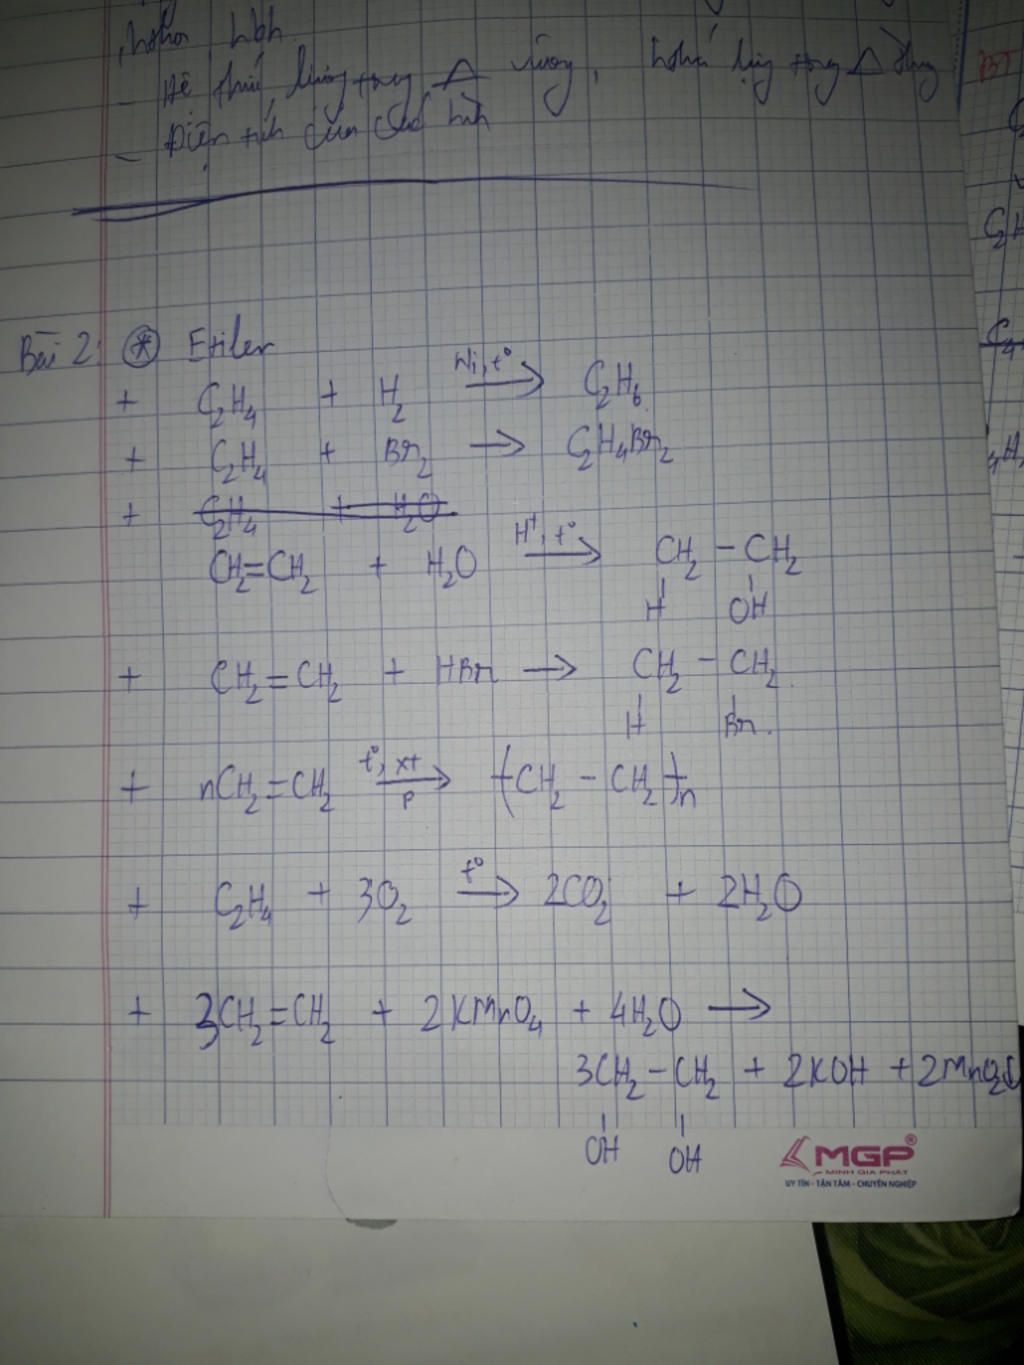 - Hệ thức lượng trong Δ vuông, trong Δ
- Diện tích của các hình
Bài 2: * Etilen
+ C₂H₄ + H₂ —Ni, t°→ C₂H₆
+ C₂H₄ + Br₂ → C₂H₄Br₂
+ C₂H₄ + H₂O
CH₂=CH₂ + H₂O —H⁺, t°→ CH₂ – CH₂
H OH
+ CH₂=CH₂ + HBr → CH₂ – CH₂
H Br.
+ nCH₂=CH₂ —t°, xt, p→ (CH₂ – CH₂)n
+ C₂H₄ + 3O₂ —t°→ 2CO₂ + 2H₂O
+ 3CH₂=CH₂ + 2KMnO₄ + 4H₂O →
3CH₂ – CH₂ + 2KOH + 2MnO₂↓
OH OH
MGP®
MINH GIA PHÁT
UY TÍN - TẬN TÂM - CHUYÊN NGHIỆP